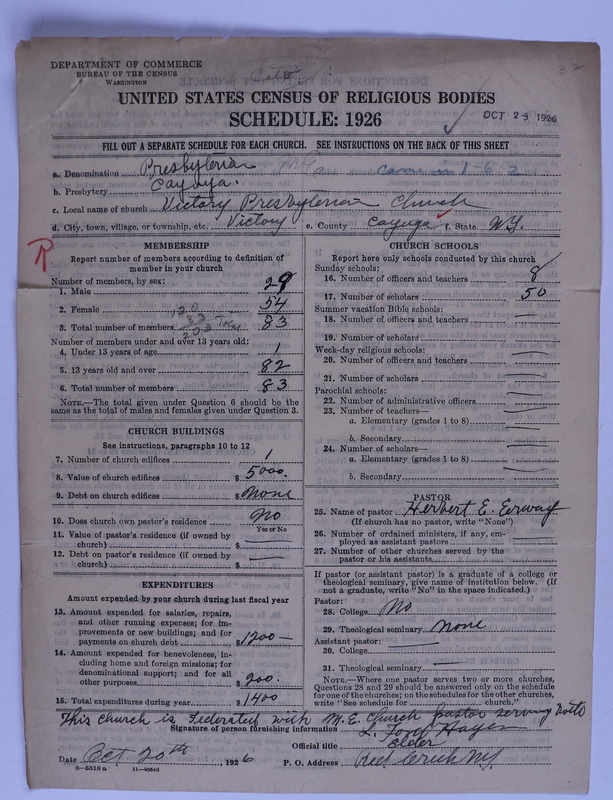 DEPARTMENT OF COMMERCE
BUREAU OF THE CENSUS
WASHINGTON
UNITED STATES CENSUS OF RELIGIOUS BODIES
SCHEDULE: 1926
OCT 23 1926
FILL OUT A SEPARATE SCHEDULE FOR EACH CHURCH. SEE INSTRUCTIONS ON THE BACK OF THIS SHEET
a. Denomination Presbyterian 1-6 2
b. Presbytery Cayuga.
c. Local name of church Victory Presbyterian Church
d. City, town, village, or township, etc. Victory e. County Cayuga f. State N.Y.
MEMBERSHIP
Report number of members according to definition of
member in your church
Number of members, by sex:
1. Male 29
2. Female 54
3. Total number of members 83
120
83
203 Total
Number of members under and over 13 years old:
4. Under 13 years of age 1
5. 13 years old and over 82
6. Total number of members 83
NOTE.—The total given under Question 6 should be
same as the total of males and females given under Question 3.
CHURCH BUILDINGS
See instructions, paragraphs 10 to 12
7. Number of church edifices 1
8. Value of church edifices $5000.
9. Debt on church edifices $None
10. Does church own pastor's residence No
Yes or No
11. Value of pastor's residence (if owned by
church) $
12. Debt on pastor's residence (if owned by
church) $
EXPENDITURES
Amount expended by your church during last fiscal year
13. Amount expended for salaries, repairs,
and other running expenses; for im-
provements or new buildings; and for
payments on church debt $1200—
14. Amount expended for benevolences, in-
cluding home and foreign missions; for
denominational support; and for all
other purposes $200.
15. Total expenditures during year $1400
CHURCH SCHOOLS
Report here only schools conducted by this church
Sunday schools:
16. Number of officers and teachers 8
17. Number of scholars 50
Summer vacation Bible schools:
18. Number of officers and teachers —
19. Number of scholars —
Week-day religious schools:
20. Number of officers and teachers —
21. Number of scholars —
Parochial schools:
22. Number of administrative officers —
23. Number of teachers—
a. Elementary (grades 1 to 8) —
b. Secondary —
24. Number of scholars—
a. Elementary (grades 1 to 8) —
b. Secondary —
PASTOR
25. Name of pastor Herbert E. Erway
(If church has no pastor, write "None")
26. Number of ordained ministers, if any, em-
ployed as assistant pastors
27. Number of other churches served by the
pastor or his assistants
If pastor (or assistant pastor) is a graduate of a college or
theological seminary, give name of institution below. (If
not a graduate, write "No" in the space indicated.)
Pastor:
28. College No
29. Theological seminary None
Assistant pastor:
30. College —
31. Theological seminary —
NOTE.—Where one pastor serves two or more churches,
Questions 28 and 29 should be answered only on the schedule
for one of the churches; on the schedules for the other churches,
write "See schedule for church."
This church is Federated with M.E. Church pastor serving both
Signature of person furnishing information L. Ford Hayes
Official title Elder
Date Oct 20th, 1926 P. O. Address Red Creek NY
8—5518 a 11—90544